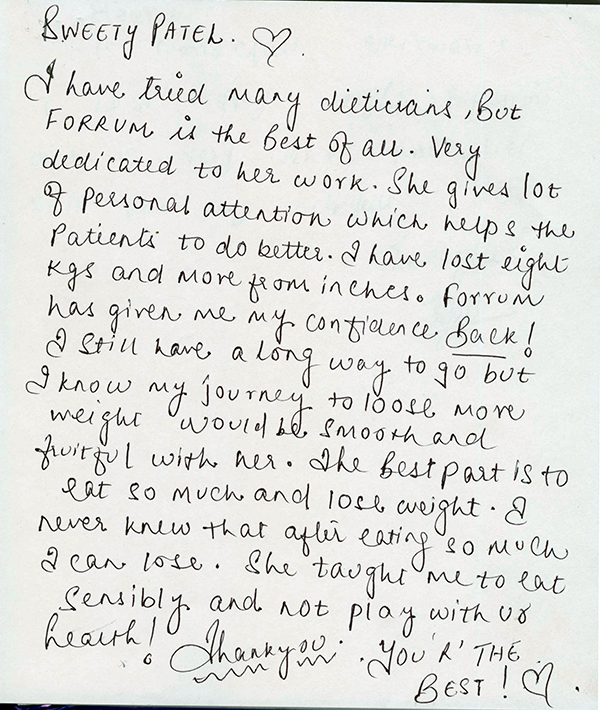 SWEETY PATEL. ♡.
I have tried many dieticians, But
FORRUM is the best of all. Very
dedicated to her work. She gives lot
of Personal attention which helps the
Patients to do better. I have lost eight
kgs and more from inches. Forrum
has given me my confidence Back!
I still have a long way to go but
I know my journey to loose more
weight would be smooth and
fruitful with her. The best part is to
eat so much and lose weight. I
never knew that after eating so much
I can lose. She taught me to eat
sensibly and not play with ur
health! Thankyou. YOU'R' THE
BEST! ♡.